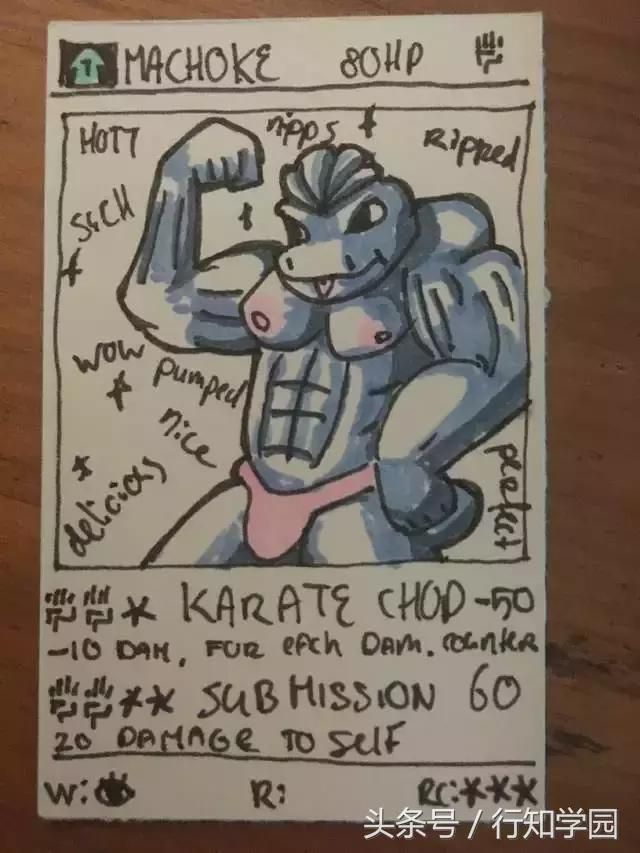 MACHOKE 80HP
HOTT
nipps
Ripped
SUCH
WOW
pumped
nice
delicious
perfect
KARATE CHOP -50
-10 DAM. FUR each DAM. COUNTER
SUBMISSION 60
20 DAMAGE TO SELF
W: R: RC:
头条号 / 行知学园